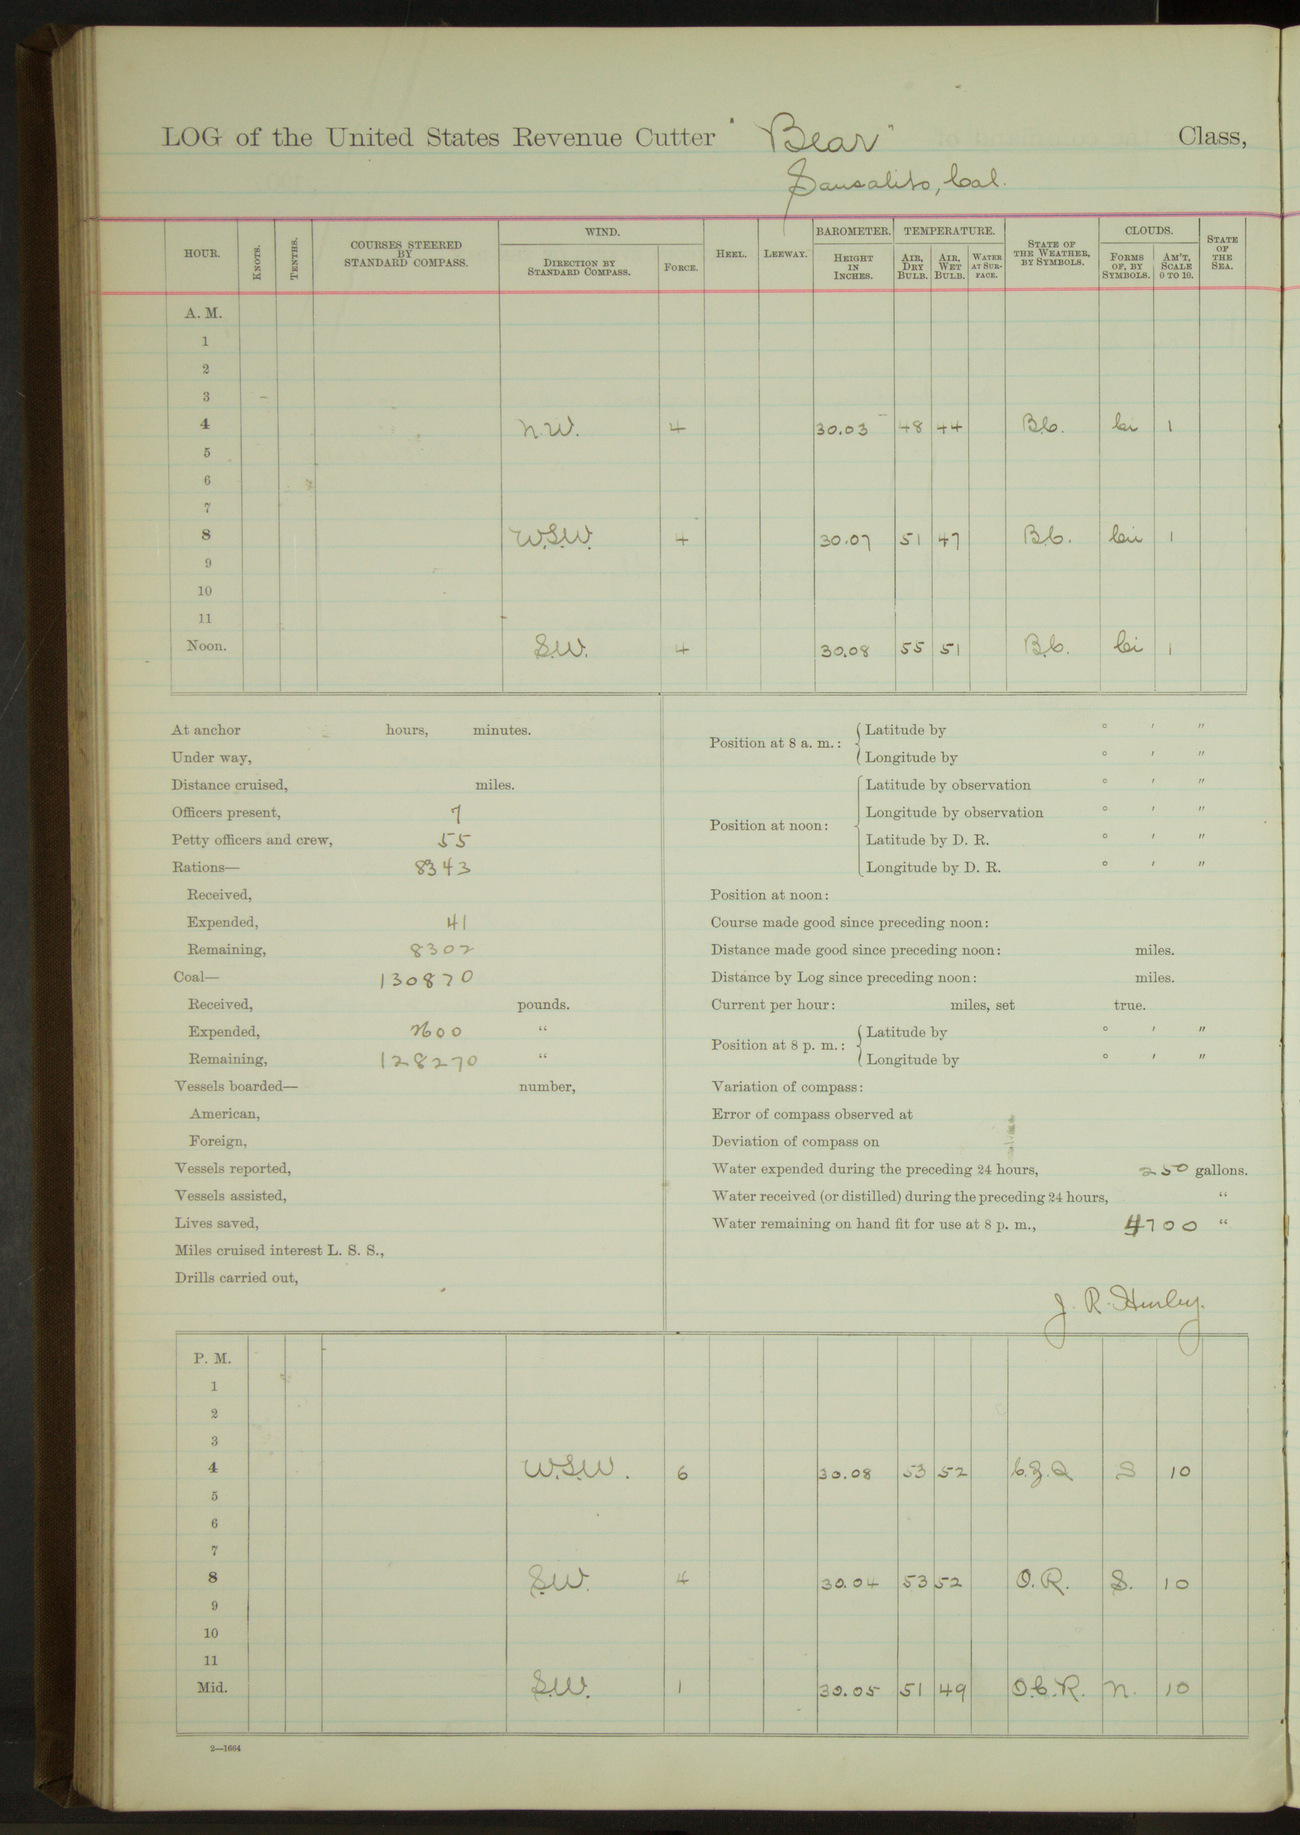 LOG of the United States Revenue Cutter "Bear" Class,
Sausalito, Cal.
HOUR. KNOTS. TENTHS. COURSES STEERED BY STANDARD COMPASS. WIND. DIRECTION BY STANDARD COMPASS. FORCE. HEEL. LEEWAY. BAROMETER. HEIGHT IN INCHES. TEMPERATURE. AIR, DRY BULB. AIR, WET BULB. WATER AT SURFACE. STATE OF THE WEATHER, BY SYMBOLS. CLOUDS. FORMS OF, BY SYMBOLS. AM'T, SCALE 0 TO 10. STATE OF THE SEA.
A. M.
1
2
3
4 N.W. 4 30.03 48 44 B.C. Ci 1
5
6
7
8 W.S.W. 4 30.07 51 47 B.C. Ci 1
9
10
11
Noon. S.W. 4 30.08 55 51 B.C. Ci 1
At anchor hours, minutes.
Under way,
Distance cruised, miles.
Officers present, 7
Petty officers and crew, 55
Rations— 8343
Received,
Expended, 41
Remaining, 8302
Coal— 130870
Received, pounds.
Expended, 2600 "
Remaining, 128270 "
Vessels boarded— number,
American,
Foreign,
Vessels reported,
Vessels assisted,
Lives saved,
Miles cruised interest L. S. S.,
Drills carried out,
Position at 8 a. m.: Latitude by ° ′ ″
Longitude by ° ′ ″
Position at noon: Latitude by observation ° ′ ″
Longitude by observation ° ′ ″
Latitude by D. R. ° ′ ″
Longitude by D. R. ° ′ ″
Position at noon:
Course made good since preceding noon:
Distance made good since preceding noon: miles.
Distance by Log since preceding noon: miles.
Current per hour: miles, set true.
Position at 8 p. m.: Latitude by ° ′ ″
Longitude by ° ′ ″
Variation of compass:
Error of compass observed at
Deviation of compass on
Water expended during the preceding 24 hours, 250 gallons.
Water received (or distilled) during the preceding 24 hours, "
Water remaining on hand fit for use at 8 p. m., 4700 "
J. R. Hurley.
P. M.
1
2
3
4 W.S.W. 6 30.08 53 52 S 10
5
6
7
8 S.W. 4 30.04 53 52 O.R. S. 10
9
10
11
Mid. S.W. 1 30.05 51 49 O.C.R. N. 10
2—1664